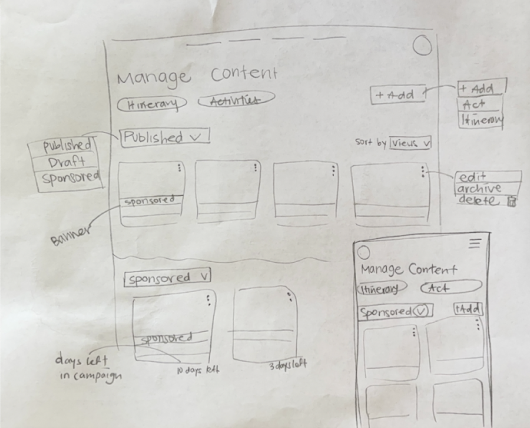 Manage Content
Itinerary Activities
+ Add
+ Add
Act
Itinerary
Published v
Published
Draft
Sponsored
sort by Views v
Sponsored
Banner
edit
archive
delete
Sponsored v
Sponsored
days left
in campaign
10 days left
3 days left
Manage Content
Itinerary Act
Sponsored v +Add